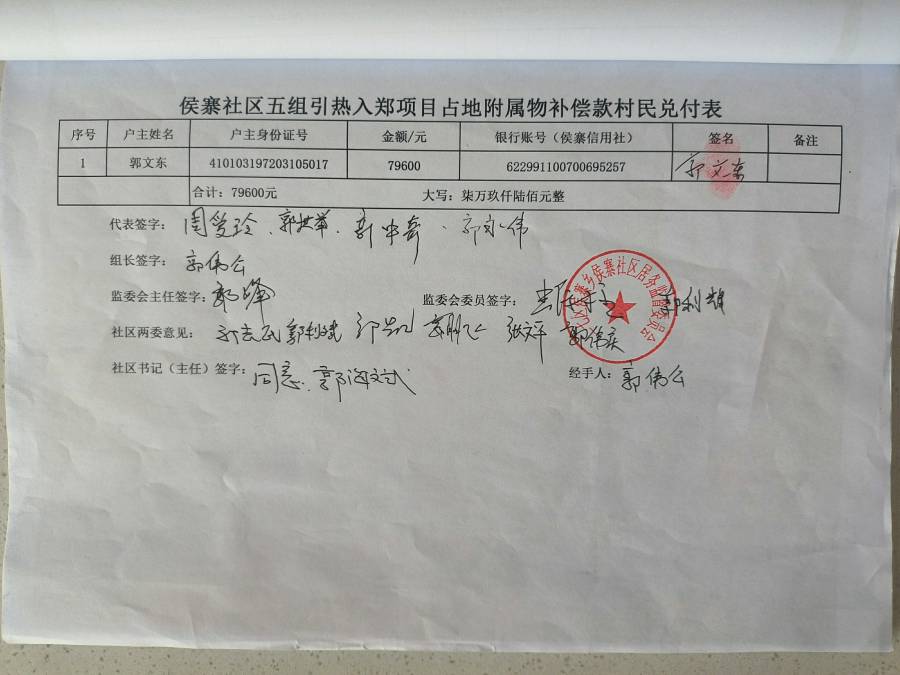 侯寨社区五组引热入郑项目占地附属物补偿款村民兑付表
序号 户主姓名 户主身份证号 金额/元 银行账号（侯寨信用社） 签名 备注
1 郭文东 410103197203105017 79600 622991100700695257 郭文东
合计：79600元 大写：柒万玖仟陆佰元整
代表签字：周爱玲、郭
组长签字：郭伟公
监委会主任签字：郭峰 监委会委员签字：郭利
社区两委意见：郭志民 张文平
社区书记（主任）签字：同意 郭海 经手人：郭伟公
七区侯寨乡侯寨社区居务监督委员会